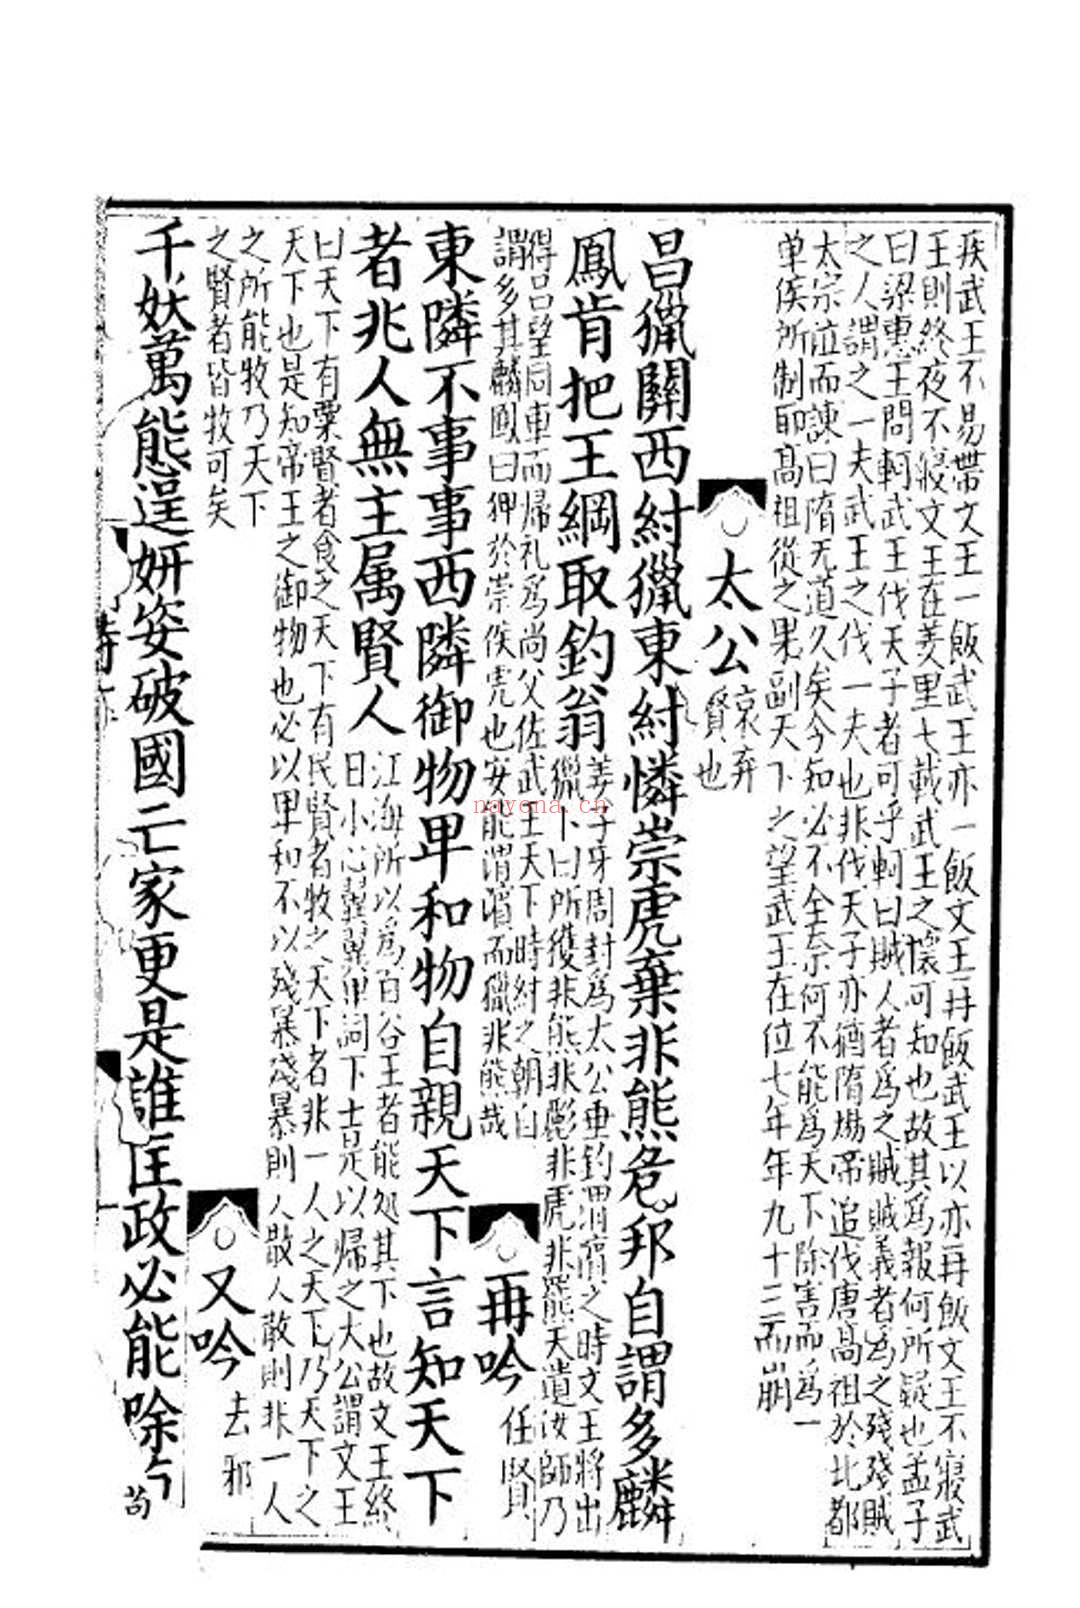 疾武王不易帶文王一飯武王亦一飯文王再飯武王以亦再飯文王不寢武
王則終夜不寢文王在羑里七載武王之懷可知也故其爲報何所疑也孟子
曰梁惠王問軻武王伐天子者可乎軻曰賊人者爲之賊賊義者爲之殘殘賊
之人謂之一夫武王之伐一夫也非伐天子亦猶隋煬帝追伐唐高祖於北都
太宗泣而諫曰隋无道久矣今知必不全奈何不能爲天下除害而爲一
单侯所制耶高祖從之果副天下之望武王在位七年年九十三而崩
太公
哀弃
賢也
昌獵關西紂獵東紂憐崇虎棄非熊危邦自謂多麟
鳳肯把王綱取釣翁
姜子牙周封爲太公垂釣渭濱之時文王將出
獵卜曰所獲非熊非彲非虎非羆天遺汝師乃
得吕望同車而歸礼爲尚父佐武王天下時紂之朝自
謂多其麟鳳曰狎於崇侯虎也安能謂濱而獵非熊哉
再吟
任賢
東隣不事事西隣御物卑和物自親天下言知天下
者兆人無主属賢人
江海所以爲百谷王者能処其下也故文王終
日小心翼翼卑詞下士是以歸之大公謂文王
曰天下有粟賢者食之天下有民賢者牧之天下者非一人之天下乃天下之
天下也是知帝王之御物也必以卑和不以殘暴殘暴則人散人散則非一人
之所能牧乃天下
之賢者皆牧可矣
又吟
去邪
千妖萬態逞妍姿破國亡家更是誰匡政必能除
苟
nayona.cn